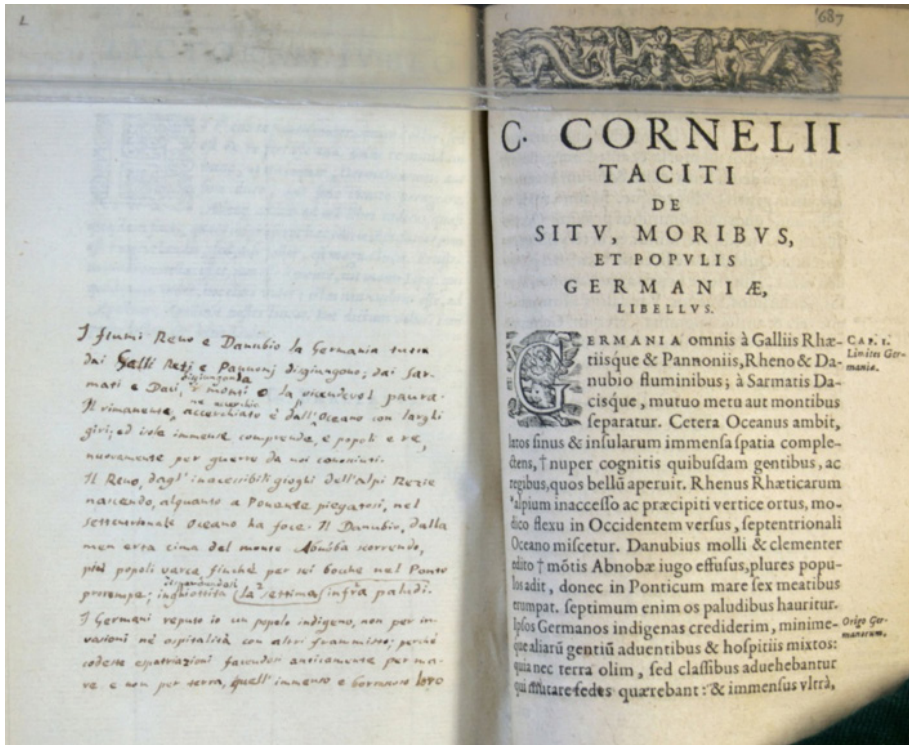 L
I fiumi Reno e Danubio la Germania tutta
dai Galli Reti e Pannonj digiungono; dai Sar-
disgiungonla
mati e Daci, i monti o la vicendevol paura.
Il rimanente, accerchiato è dall'Oceano con larghi
giri; ed isole immense comprende, e popoli e re,
nuovamente per guerre da noi conosciuti.
Il Reno, dagl'inaccessibili gioghi dell'alpi Rezie
nascendo, alquanto a Ponente piegatosi, nel
settentrionale Oceano ha foce. Il Danubio, dalla
men erta cima del monte Abnóba scorrendo,
più popoli varca, finchè per sei bocche nel Ponto
prorompe; inghiottita la settima infra paludi.
I Germani reputo io un popolo indigeno, non per in-
vasioni nè ospitalità con altri frammisto; perchè
codeste espatriazioni facendosi anticamente per ma-
re e non per terra, quell'immenso e loro
1
687
C. CORNELII
TACITI
DE
SITV, MORIBVS,
ET POPVLIS
GERMANIÆ,
LIBELLVS.
GERMANIA omnis à Galliis Rhæ-
tiisque & Pannoniis, Rheno & Da-
nubio fluminibus; à Sarmatis Da-
cisque, mutuo metu aut montibus
separatur. Cetera Oceanus ambit,
latos sinus & insularum immensa spatia comple-
ctens, † nuper cognitis quibusdam gentibus, ac
regibus, quos bellũ aperuit. Rhenus Rhæticarum
*alpium inaccesso ac præcipiti vertice ortus, mo-
dico flexu in Occidentem versus, septentrionali
Oceano miscetur. Danubius molli & clementer
edito † mõtis Abnobæ iugo effusus, plures popu-
los adit, donec in Ponticum mare sex meatibus
erumpat. septimum enim os paludibus hauritur.
Ipsos Germanos indigenas crediderim, minime-
que aliarũ gentiũ aduentibus & hospitiis mixtos:
quia nec terra olim, sed classibus aduehebantur
qui mutare sedes quærebant: & immensus vltrà,
CAP. I.
Limites Ger-
manie.
Origo Ger-
manorum.